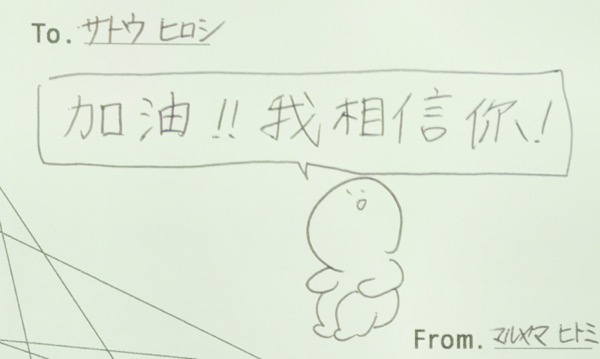 To. サトウ ヒロシ
加油!! 我相信你!
From. マルヤマ ヒトミ